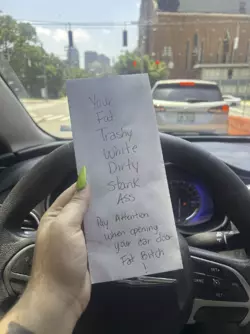 Your
Fat
Trashy
White
Dirty
Stank
ASS
Pay Attention
when opening
your car door
Fat Bitch
!